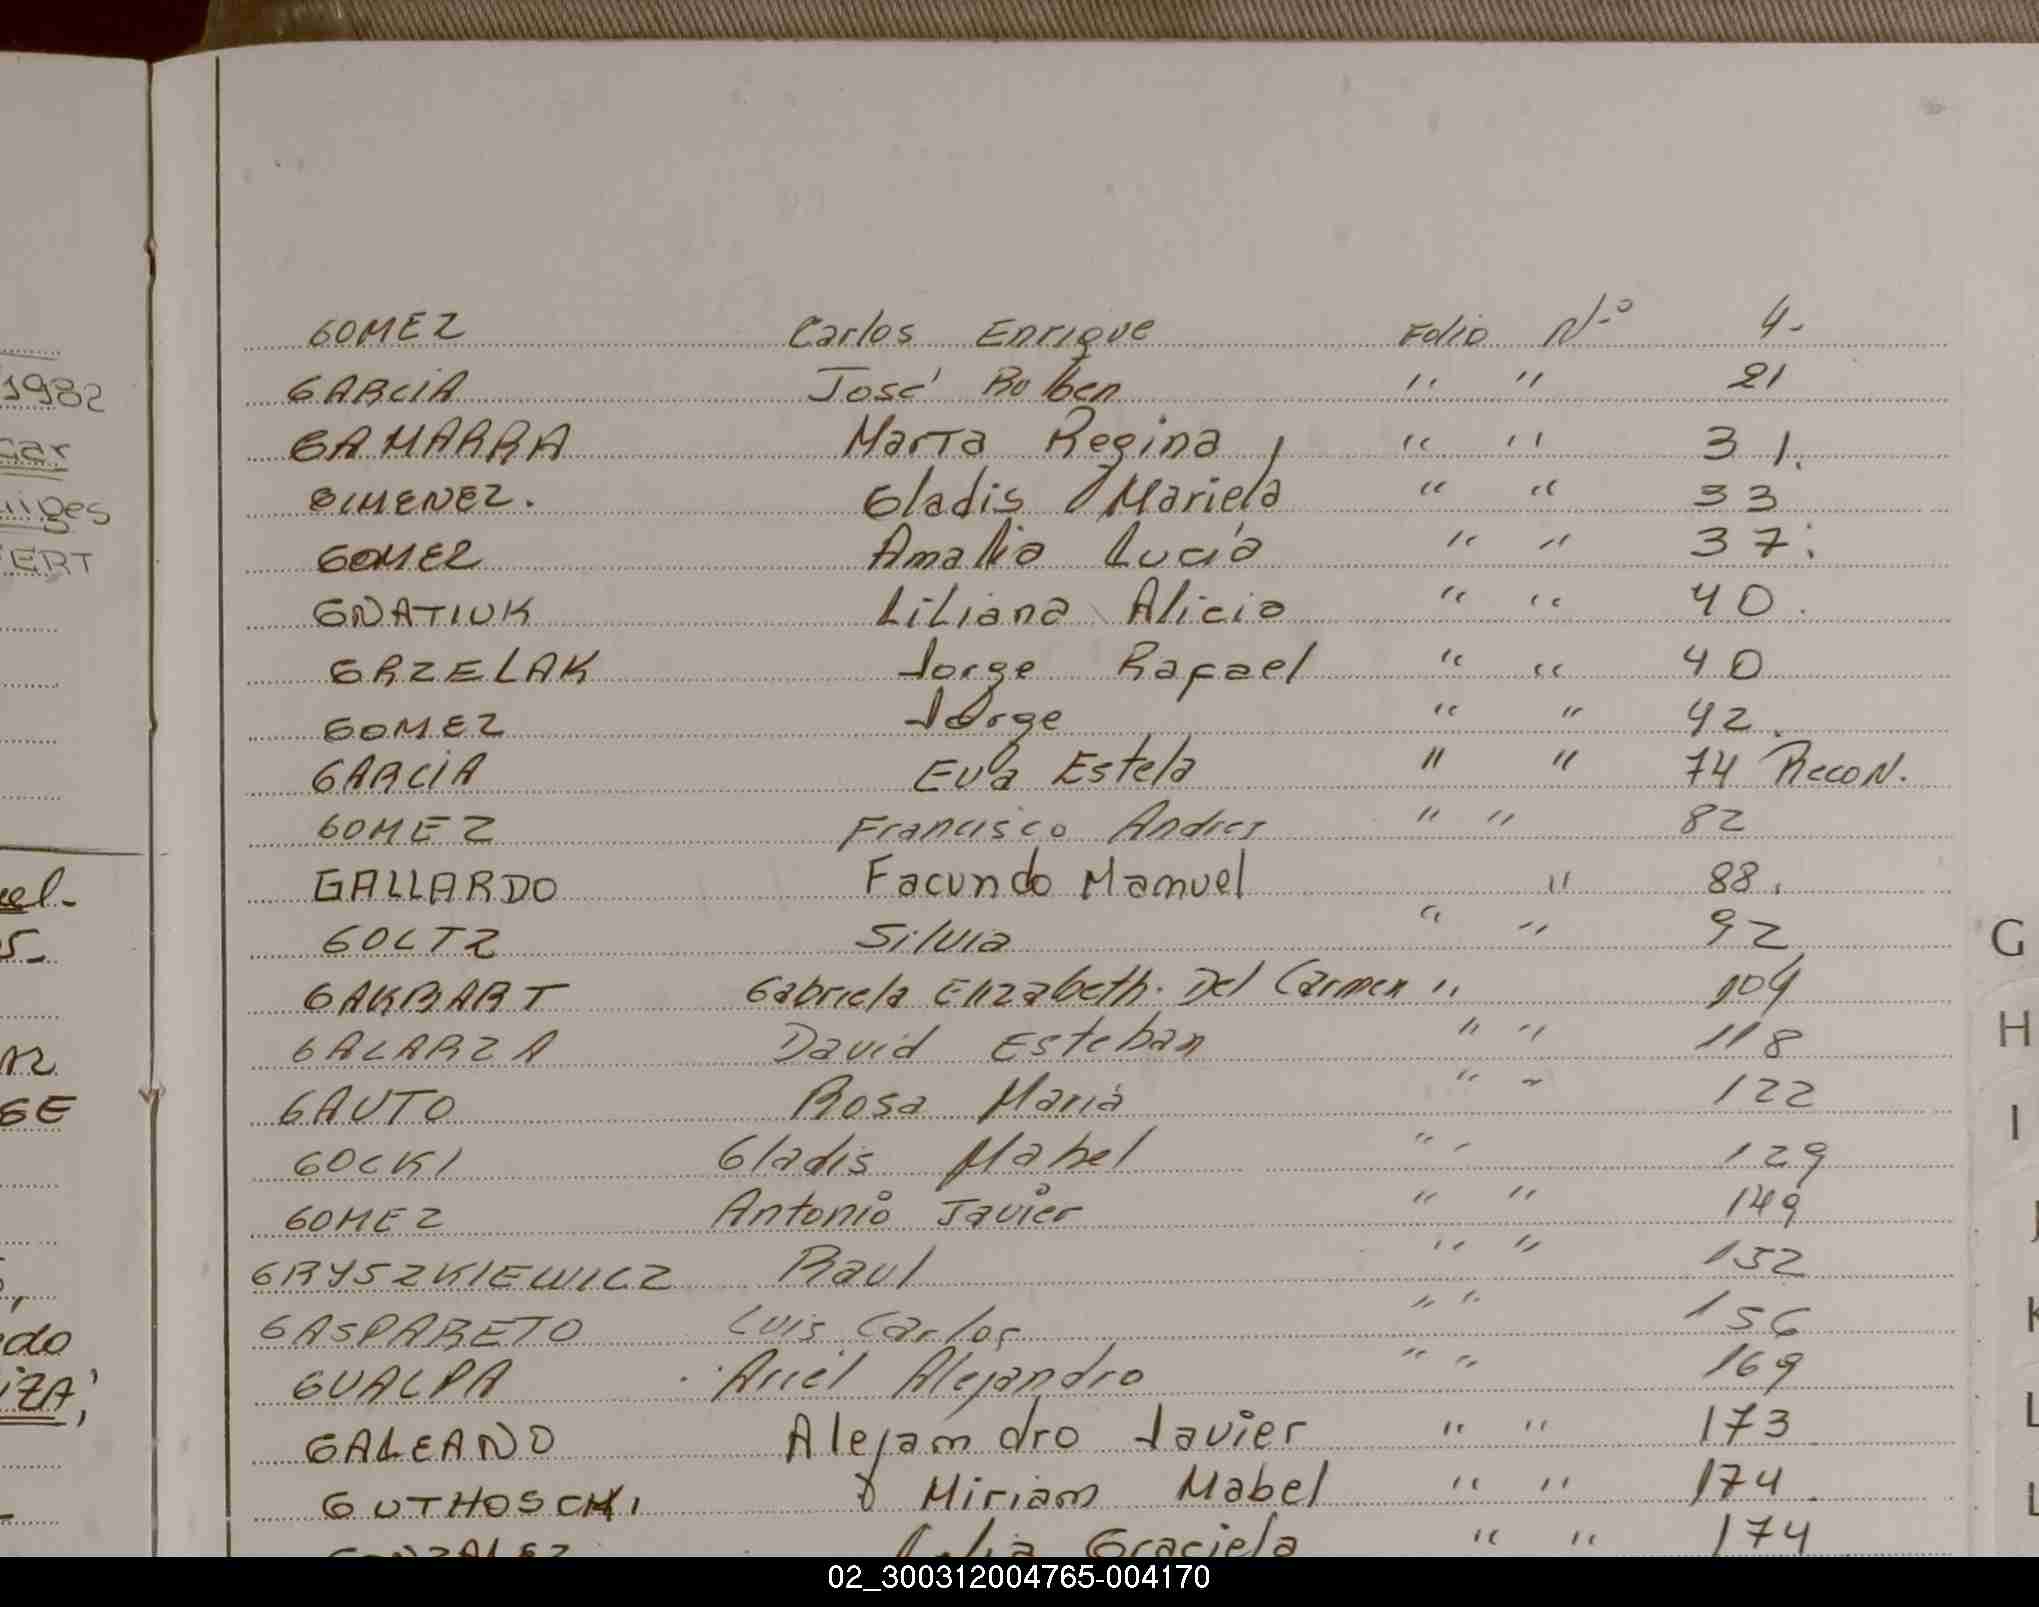 GOMEZ Carlos Enrique Folio Nº 4-
GARCIA José Rubben " " 21
GAMARRA Marta Regina " " 31.
GIMENEZ. Gladis Mariela " " 33
GOMEZ Amalia Lucía " " 37.
GNATIUK Liliana Alicia " " 40.
GRZELAK Jorge Rafael " " 40
GOMEZ Jorge " " 42.
GARCIA Eva Estela " " 74 Recon.
GOMEZ Francisco Andres " " 82
GALLARDO Facundo Manuel " 88.
GOLTZ Silvia " " 92
GAKBART Gabriela Elizabeth. Del Carmen " 104
GALARZA David Esteban " " 118
GAUTO Rosa María " " 122
GOCKI Gladis Mabel " " 129
GOMEZ Antonio Javier " " 149
GRYSZKIEWICZ Raul " " 152
GASPARETO Luis Carlos " " 156
GUALPA Ariel Alejandro " " 169
GALEANO Alejandro Javier " " 173
GUTHOSCKI Miriam Mabel " " 174
GONZALEZ Graciela " " 174
1982
ERT
G
H
I
J
K
L
02_300312004765-004170